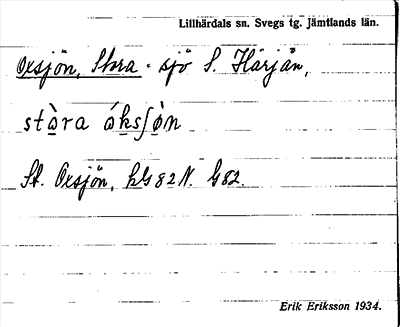 Lillhärdals sn. Svegs tg. Jämtlands län.
Oxsjön, Stora - sjö S. Härjån,
stòra óksʃòn
St. Oxsjön, kG 82 N. G 82.
Erik Eriksson 1934.